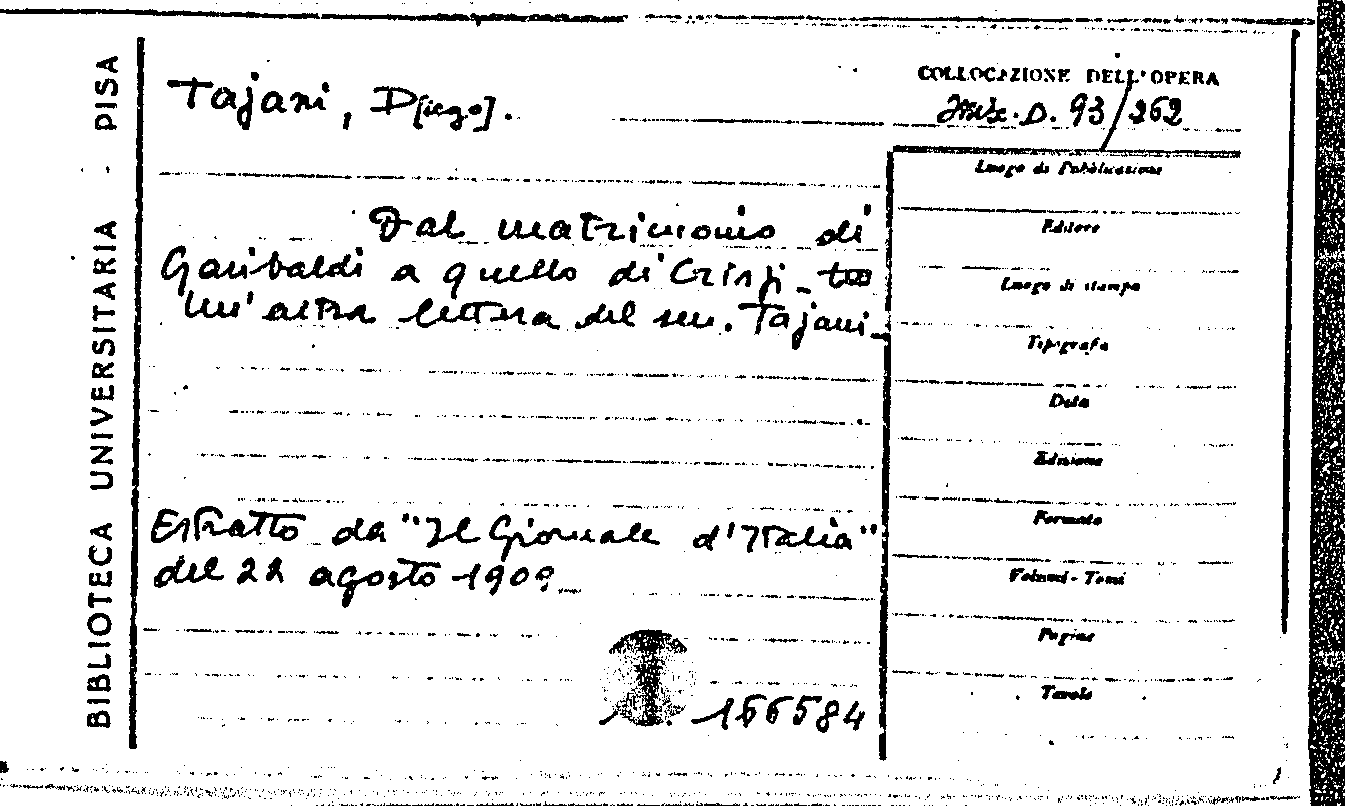 BIBLIOTECA UNIVERSITARIA - PISA
Tajani, D[iego].
COLLOCAZIONE DELL'OPERA
Misc. D. 93/262
Dal matrimonio di
Garibaldi a quello di Crispi -
Un'altra lettera del sen. Tajani -
Estratto da "Il Giornale d'Italia"
del 22 agosto 1909
166584
Luogo di Pubblicazione
Editore
Luogo di stampa
Tipografo
Data
Edizione
Formato
Volumi - Tomi
Pagine
Tavole